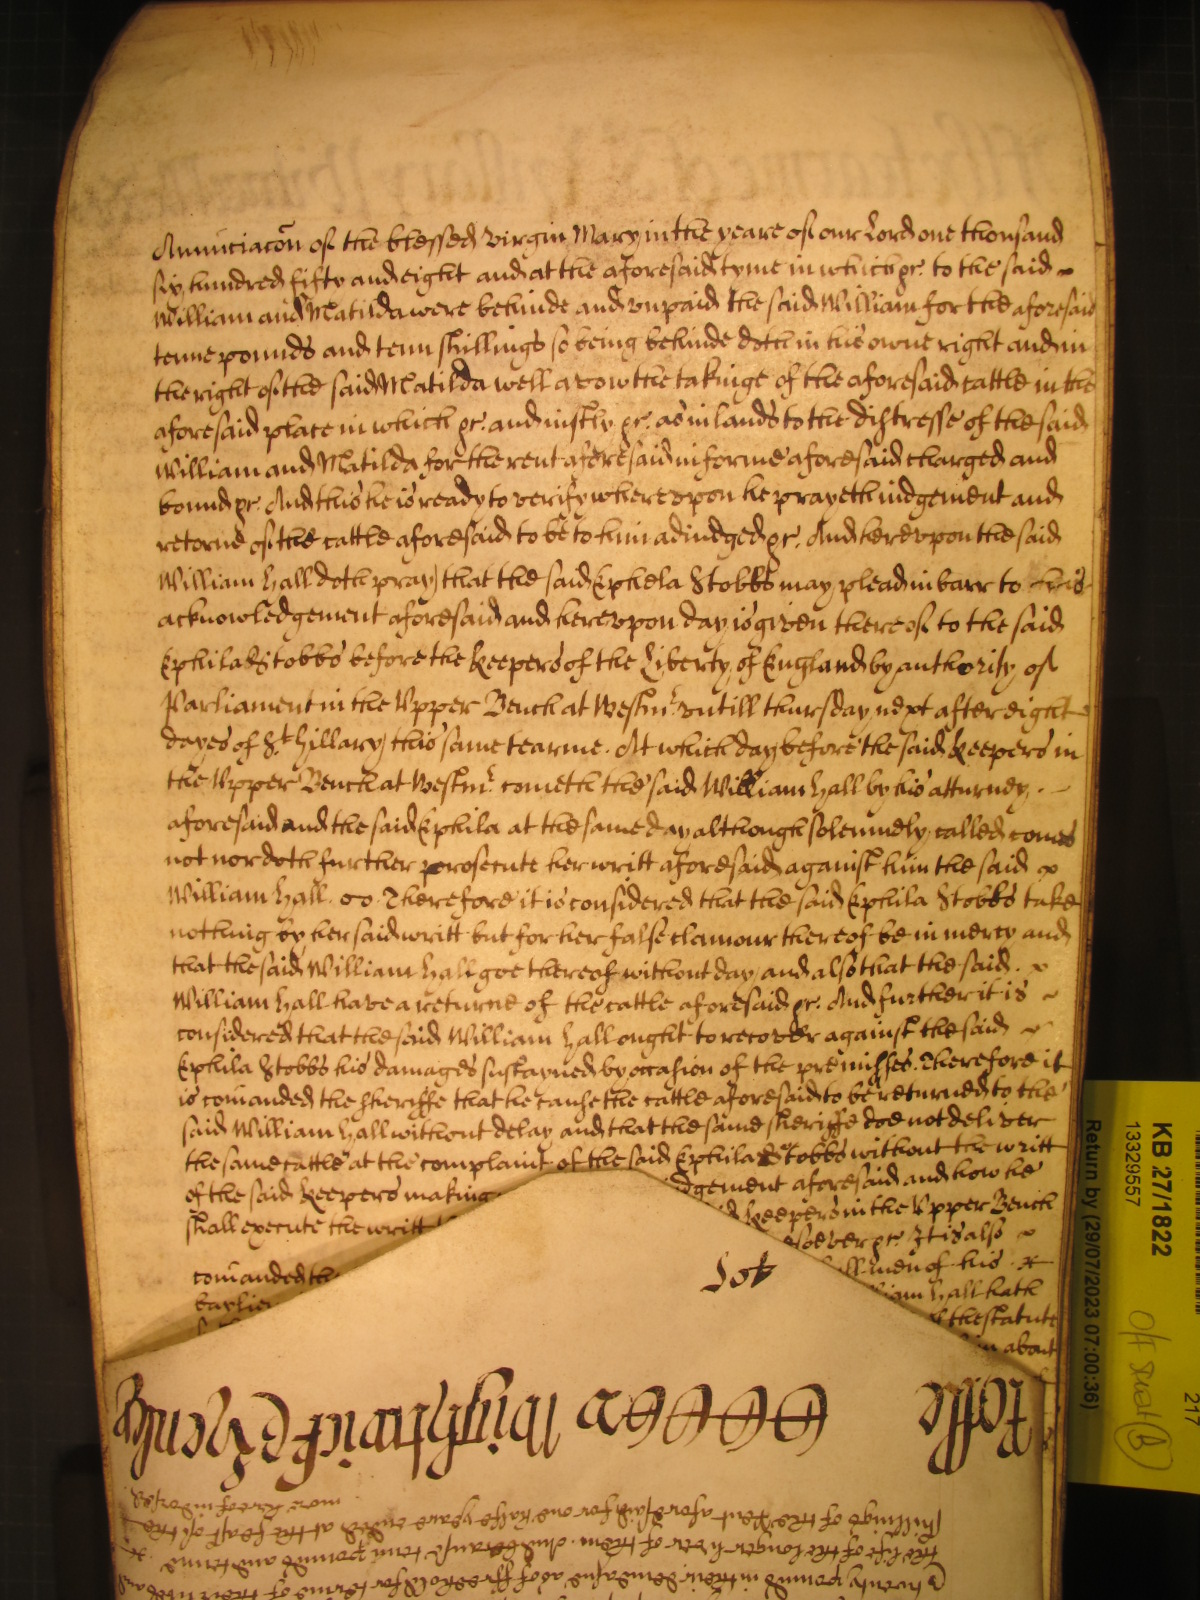 Anunciacōn of the blessed virgin Mary in the yeare of our Lord one thousand
six hundred fifty and eight and at the aforesaid tyme in which &c. to the said
William and Matilda were behinde and vnpaid the said William for the aforesaid
tenne pounds and tenn shillings so being behinde doth in his owne right and in
the right of the said Matilda well avow the takinge of the aforesaid cattle in the
aforesaid place in which &c. and iustly &c. as in lands to the distresse of the said
William and Matilda for the rent aforesaid in forme aforesaid charged and
bound &c. And this he is ready to verify wherevpon he prayeth iudgement and
retorne of the cattle aforesaid to be to him adiudged &c. And herevpon the said
William Hall doth pray that the said Ephela Stobbs may plead in barr to his
acknowledgement aforesaid and herevpon day is given thereof to the said
Ephila Stobbs before the Keepers of the Liberty of England by authority of
Parliament in the Vpper Bench at Westmr vntill thursday next after eight
dayes of St Hillary this same tearme. At which day before the said Keepers in
the Vpper Bench at Westmr cometh the said William Hall by his atturney
aforesaid and the said Ephila at the same day although solemnely called comes
not nor doth further prosecute her writt aforesaid against him the said
William Hall. Therefore it is considered that the said Ephila Stobbs take
nothing by her said writt but for her false clamour thereof be in mercy and
that the said William Hall goe thereof without day and also that the said
William Hall have a returne of the cattle aforesaid &c. And further it is
considered that the said William Hall ought to recover against the said
Ephila Stobbs his damages sustayned by occasion of the premisses. Therefore it
is com̄anded the sheriffe that he cause the cattle aforesaid to be returned to the
said William Hall without delay and that the same sheriffe doe not deliver
the same cattle at the complaint of the said Ephila Stobbs without the writt
of the said Keepers making dgement aforesaid and how he
shall execute the writt Keepers in the Vpper Bench
soever &c. It is also
com̄anded th men of his
iam Hall hath
the statute
in about
KB 27/1822
13329557
Return by (29/07/2023 07:00:36)
217
Rosse
more thereof
shillings of the Rent aforesaid for one halfe yeare ended at the feast of the
the life of the longer liver of them. And tenn pounds and tenne
twenty pounds in their demesne as of freehold for terme of their lives and